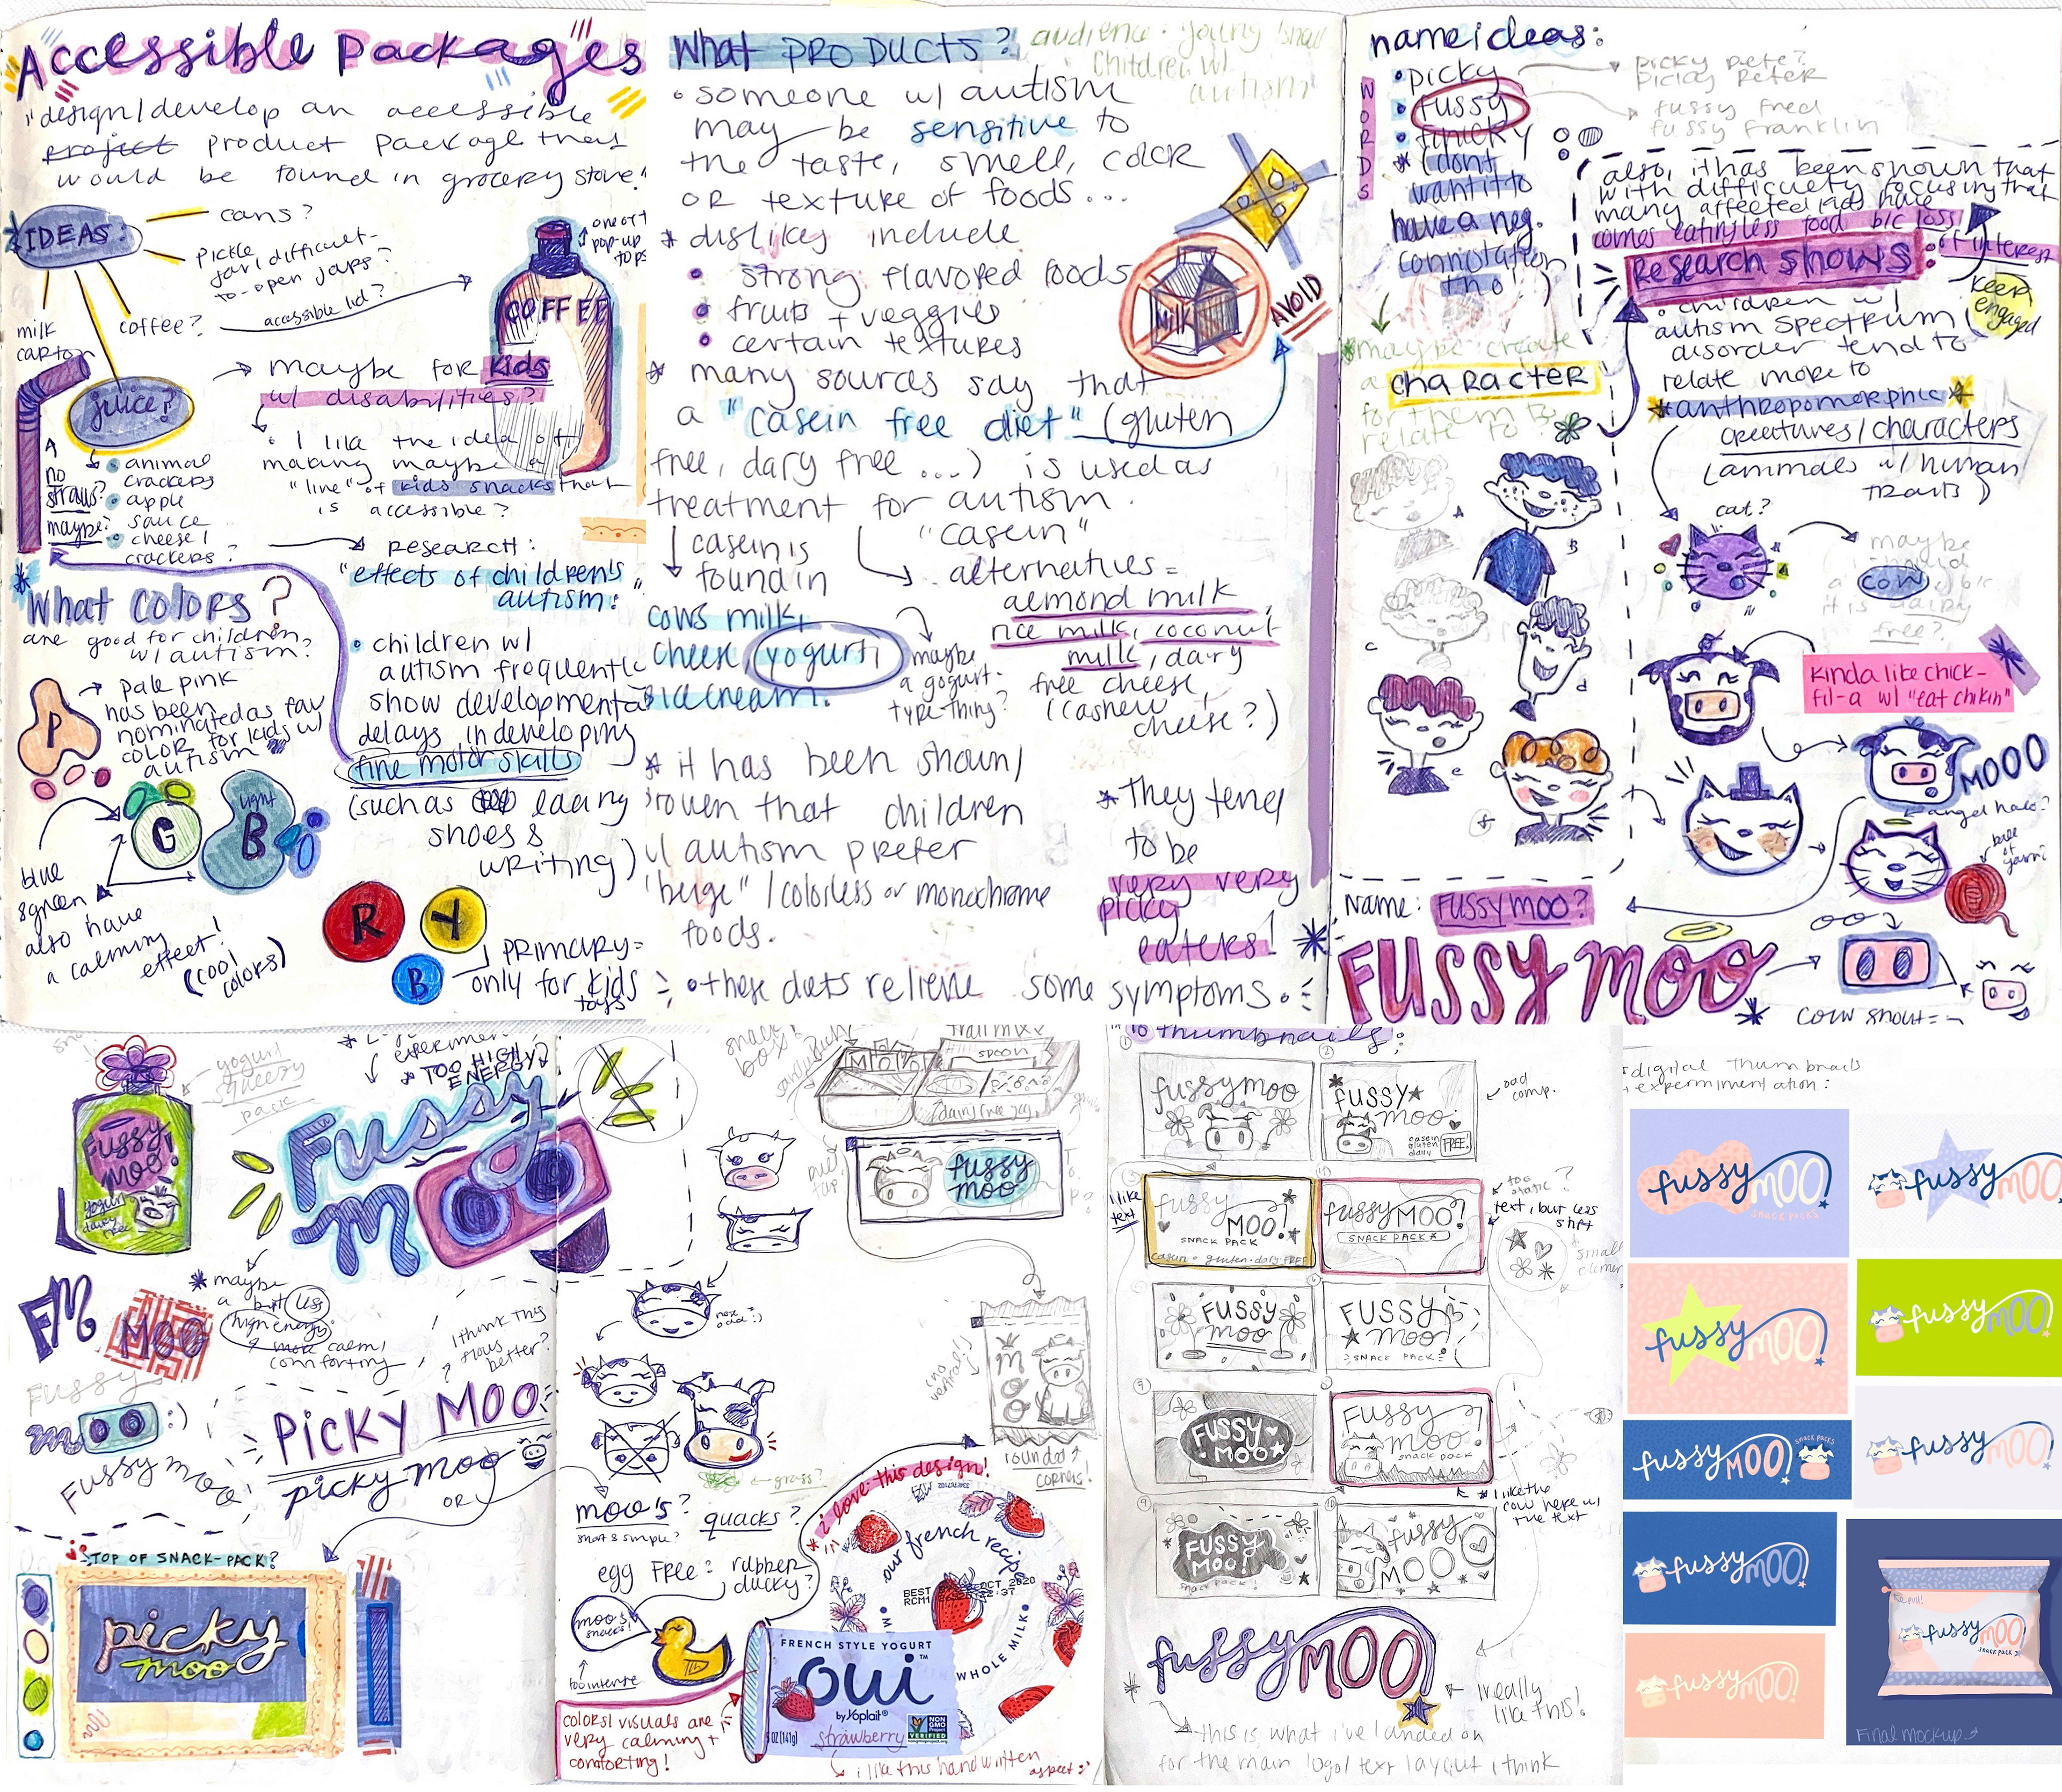 Accessible Packages
"design/develop an accessible
project product package that
would be found in grocery store"
IDEAS:
cans?
pickle
jar/difficult-
to-open jars?
accessible lid?
one of
pop-up
tops
COFFEE
milk
carton
coffee?
juice?
maybe for kids
w/ disabilities?
A
no
straws?
maybe?
animal
crackers
apple
sauce
cheese/
crackers?
I like the idea of
making maybe a
"line" of kids snacks that
is accessible?
research:
"effects of children's
autism:"
What COLORS?
are good for children
w/ autism?
P
pale pink
has been
nominated as fav
color for kids w/
autism
G
light
B
blue
& green
also have
a calming
effect!
(cool
colors)
children w/
autism frequently
show developmental
delays in developing
fine motor skills
(such as lacing
shoes &
writing)
R
Y
B
primary =
only for kids
toys
What PRODUCTS?
audience: young/small
children w/
autism
someone w/ autism
may be sensitive to
the taste, smell, color
or texture of foods...
dislikes include
strong flavored foods
fruits + veggies
certain textures
MILK
AVOID
many sources say that
a "casein free diet" (gluten
free, dary free...) is used as
treatment for autism.
casein is
found in
cows milk,
cheese, yogurt,
& ice cream.
"casein"
alternatives =
almond milk,
rice milk, coconut
milk, dairy
free cheese,
(cashew
cheese?)
maybe
a yogurt-
type thing?
it has been shown/
proven that children
w/ autism prefer
"beige"/colorless or monochrome
foods.
they tend
to be
very very
picky
eaters!
these diets relieve some symptoms.
name ideas:
WORDS
picky
fussy
finicky
(dont
want it to
have a neg.
connotation
tho!)
picky pete?
picky peter
fussy fred
fussy franklin
also, it has been shown that
with difficulty focusing that
many affected kids have
comes eating less food b/c loss
of interest
Research shows:
keep
engaged
children w/
autism spectrum
disorder tend to
relate more to
anthropomorphic
creatures/characters
(animals w/ human
traits)
maybe create
a character
for them to
relate to
A
B
C
d
e
f
cat?
maybe
a cow, b/c
it is dairy
free?
kinda like chick-
fil-a w/ "eat chikin"
MOO
angel halo?
ball
of
yarn?
Name: FUSSY MOO?
FUSSY MOO
cow snout =
yogurt
squeezy
pack
Fussy
Moo!
yogurt
dairy
free
experiment
TOO HIGH
ENERGY?
Fussy
M
FM
MOO
maybe
a bit less
high energy
& more calm/
comforting
I think this
flows
better?
Fussy
m :)
Fussy moo
PICKY MOO
picky moo
OR
TOP OF SNACK-PACK?
picky
moo
snack
box?
trail mix
SPOON
MOO
dairy free
fussy
moo
nose
odd :)
moo
rounded
corners!
grass?
moo's? quacks?
short & simple?
egg free: rubber
ducky?
moo's
snacks!
too intense
i love this design!
our french recipe
WHOLE MILK
BEST
OCT 2020
FRENCH STYLE YOGURT
oui™
by Yoplait®
strawberry
5 OZ (141g)
NON
GMO
Project
VERIFIED
colors/visuals are
very calming +
comforting!
i like this handwritten
aspect :)
10 thumbnails:
fussymoo
FUSSY
moo
casein
gluten
dairy
FREE!
bad
comp.
I like
text
fussy
MOO!
SNACK PACK
casein • gluten • dairy FREE
fussyMOO!
SNACK PACK
too
static?
text, but less
shift
small
elements
FUSSY
moo
FUSSY
moo!
SNACK PACK
FUSSY
MOO
Fussy
moo!
snack pack
I like the
cow here w/
the text
FUSSY
MOO!
snack pack
fussy
MOO
fussyMOO!
I really
like this!
this is what i've landed on
for the main logo/text layout i think
digital thumbnails
+ experimentation:
fussymoo!
SNACK PACKS
fussymoo
fussymoo!
fussymoo!
fussymoo!
SNACK PACKS
fussymoo!
fussymoo!
fussymoo!
fussymoo!
SNACK PACK
Final mockup